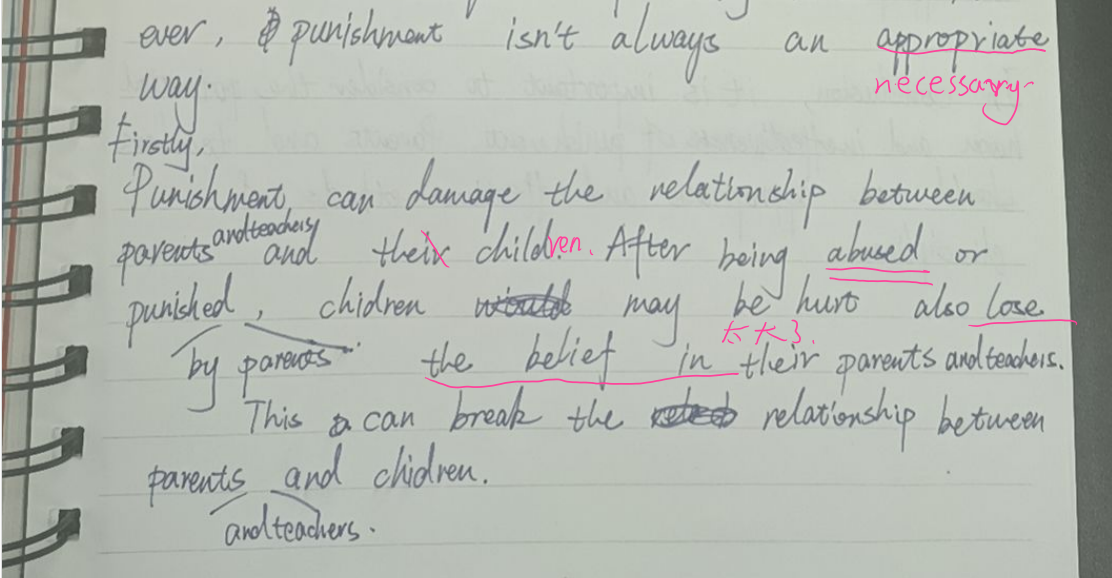 ever, punishment isn't always an appropriate
way. necessary
Firstly,
Punishment can damage the relationship between
parents and teachers and their children. After being abused or
punished, chidren may be hurt also lose
太大了.
by parents the belief in their parents and teachers.
This can break the relationship between
parents and chidren.
and teachers.